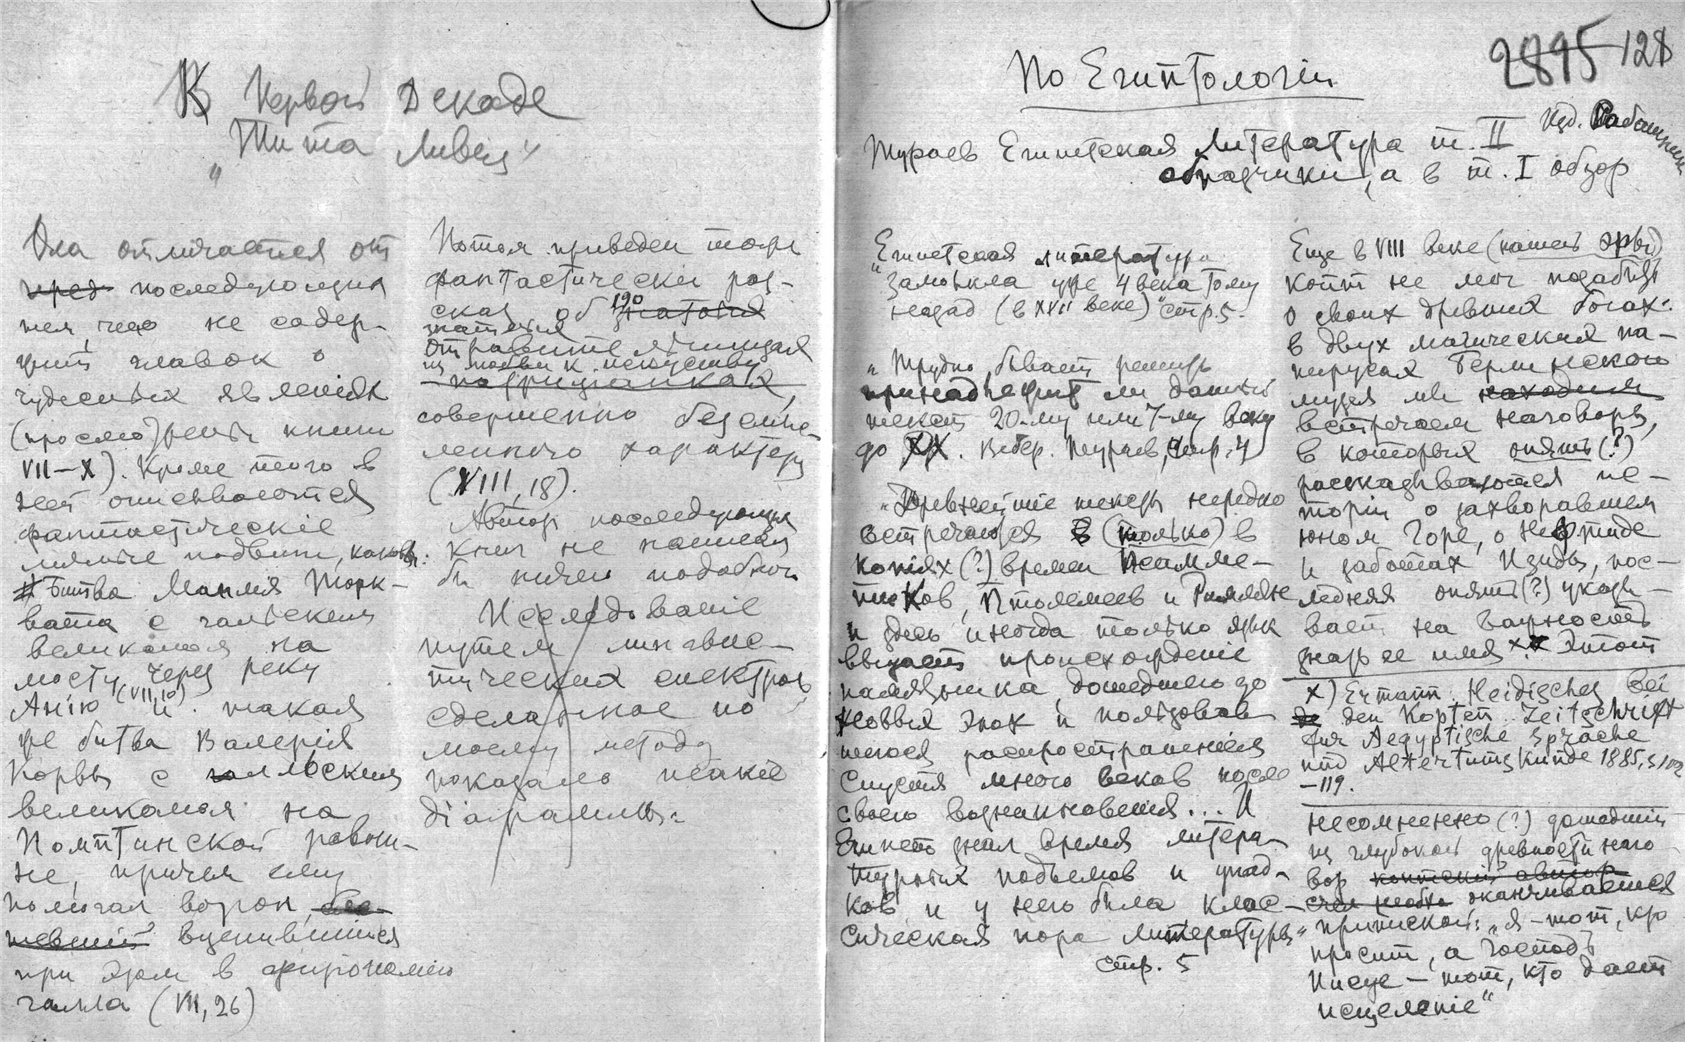 К Первой Декаде
"Тита Ливия"
Она отличается от
пред последующих
тем, что не содер-
жит главок о
чудесных явленіях
(просмотреть книги
VII–X). Кроме того в
ней описываются
фантастическіе
подвиги, каковы:
битва Манлия Торк-
вата с галльским
великаном на
мосту через реку
Анію (VII, 10) и такая
же битва Валерія
Корвы с галльским
великаном на
Помптинской равни-
не, причем ему
помогал ворон,
вцепившийся
при этом в физіономію
галла (VII, 26)
Потом приведен тоже
фантастическій раз-
сказ об 190 знатных
отравительницах
из любви к искусству
– патриціанках,
совершенно безсмыс-
леннаго характера
(VIII, 18).
Автор последующих
книг не написал
бы ничего подобного
Изследованіе
путем лингвис-
тических спектров
сделанное по
моему методу
показало такіе
діаграммы:
По Египтологіи
2895 128
Тураев Египетская Литература т. II Изд. Сабашников
образчики, а в т. I обзор
"Египетская литература
замолкла уже 4 века тому
назад (в XVII веке)" стр. 5.
"Трудно бывает решить
принадлежит ли данный
текст 20-му или 7-му веку
до XX. Тураев, стр. 4
"Древнейшие тексты нередко
встречаются в (только) в
копіях (?) времен Псамме-
тихов, Птолемеев и Римлян
и здесь иногда только язык
выдает происхожденіе
памятника, дошедшего до
новых эпох и пользовав-
шегося распространеніем
спустя много веков после
своего возникновения... И
Египет знал время литера-
турных подъемов и упад-
ков, и у него была клас-
сическая пора литературы"
стр. 5
Еще в VIII веке (нашей эры)
копт не мог позабыть
о своих древних богах:
в двух магических па-
пирусах Берлинского
музея мы находим
встречаем наговоры,
в которых опять (?)
рассказываются ис-
торіи о захворавшем
юном Горе, о Нефтиде
и заботах Изиды, пос-
ледняя опять (?) указы-
вает на важность
знать ее имя x). Этот
x) Ermann. Heidisches bei
de den Kopten. Zeitschrift
für Aegyptische Sprache
und Altertumskunde 1885, s 102
–119.
несомненно (?) дошедшій
из глубокой древности наго-
вор коптский автор
оканчивается
припиской: "я – тот, кто
просит, а Господь
Иисус – тот, кто дает
исцеленіе"